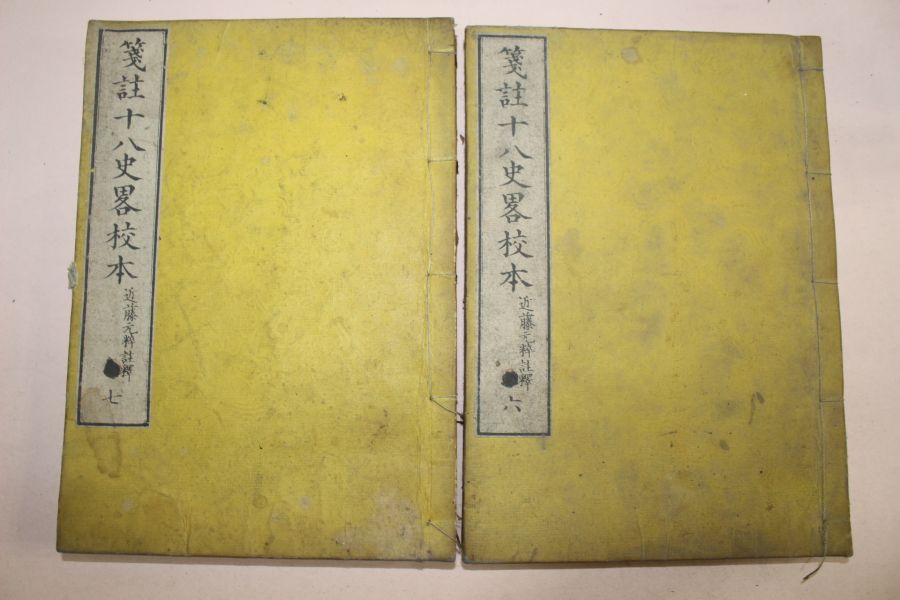 箋註十八史畧校本
近藤元粹註釋
六
箋註十八史畧校本
近藤元粹註釋
七